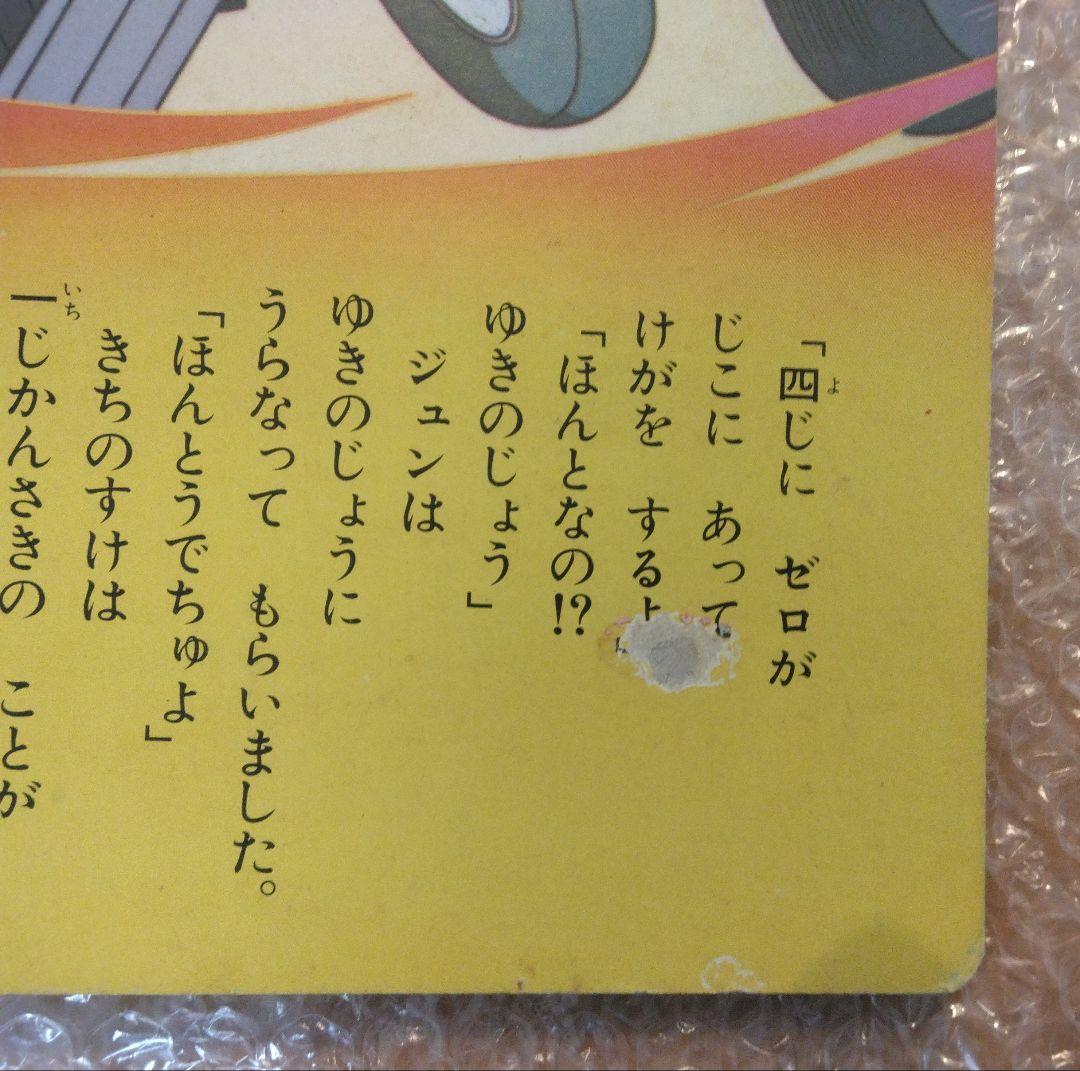 「四じに ゼロが
よ
じこに あって
けがを するよ」
「ほんとなの!?
ゆきのじょう」
ジュンは
ゆきのじょうに
うらなって もらいました。
「ほんとうでちゅよ」
きちのすけは
一じかんさきの ことが
いち